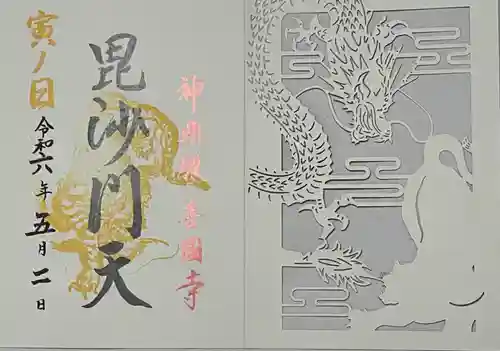 神楽坂 善國寺
毘沙門天
寅ノ日
令和六年五月二日